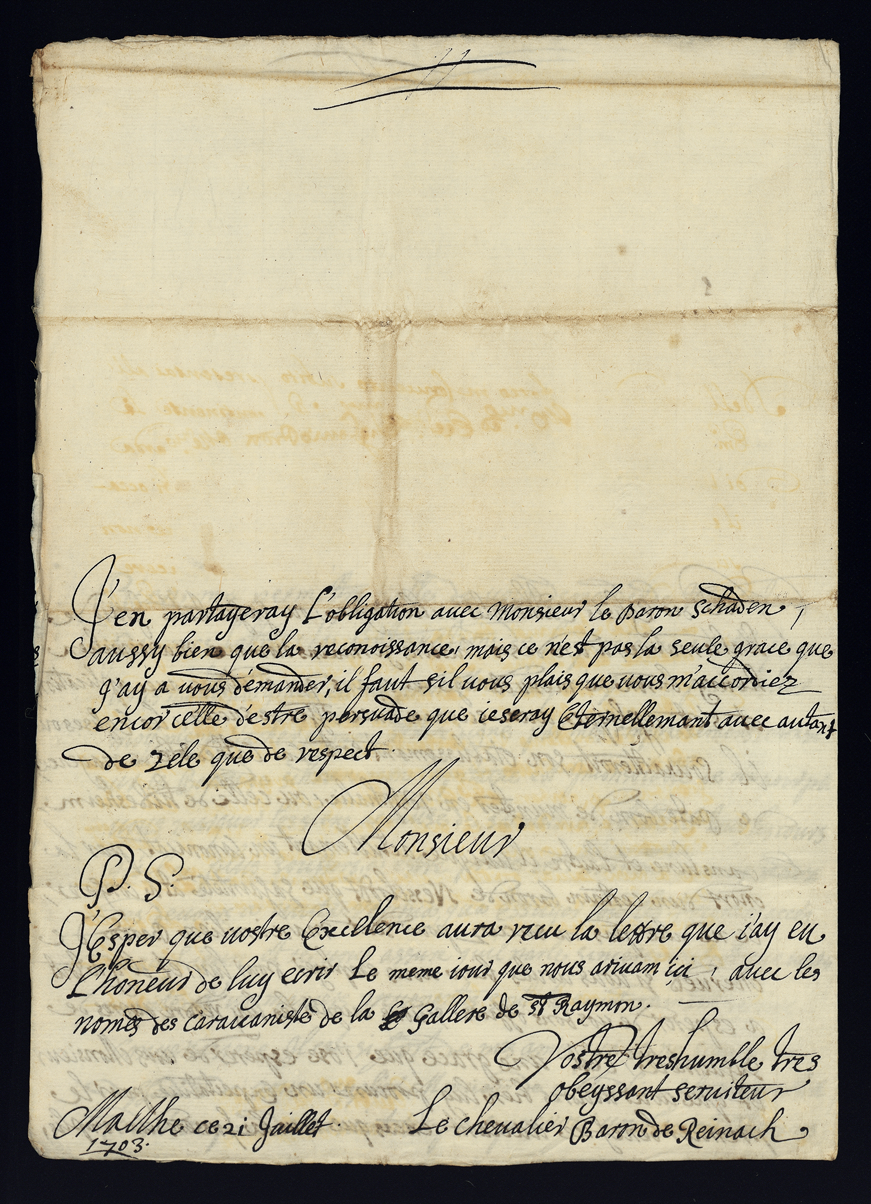 J'en partageray L'obligation avec Monsieur le Baron Schaden,
aussy bien que la reconoissance, mais ce n'est pas la seule grace que
j'ay a vous demander, il faut sil vous plais que vous m'accordiez
encor celle d'estre persuade que ie seray Eternellemant avec autant
de zele que de respect.
Monsieur
P. S.
J'Esper que vostre Excellence aura recu la lettre que i'ay eu
L'honeur de luy ecrir Le meme iour que nous arivam içi, avec les
nomes des caravaniste de la Gallere de st Raymon.
Vostre treshumble tres
obeyssant serviteur
Malthe ce 21 Juillet. Le chevalier Baron de Reinach
1703.